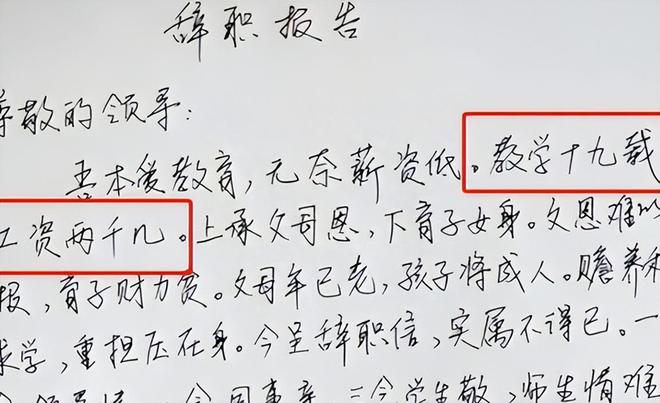 辞职报告
尊敬的领导:
吾本爱教育,无奈薪资低。教学十九载
工资两千几。上承父母恩,下育子女身。父恩难以
报,育子财力贫。父母年已老,孩子将成人。赡养和
求学,重担压在身。今呈辞职信,实属不得已。一
同事亲,三念学生敬,师生情难